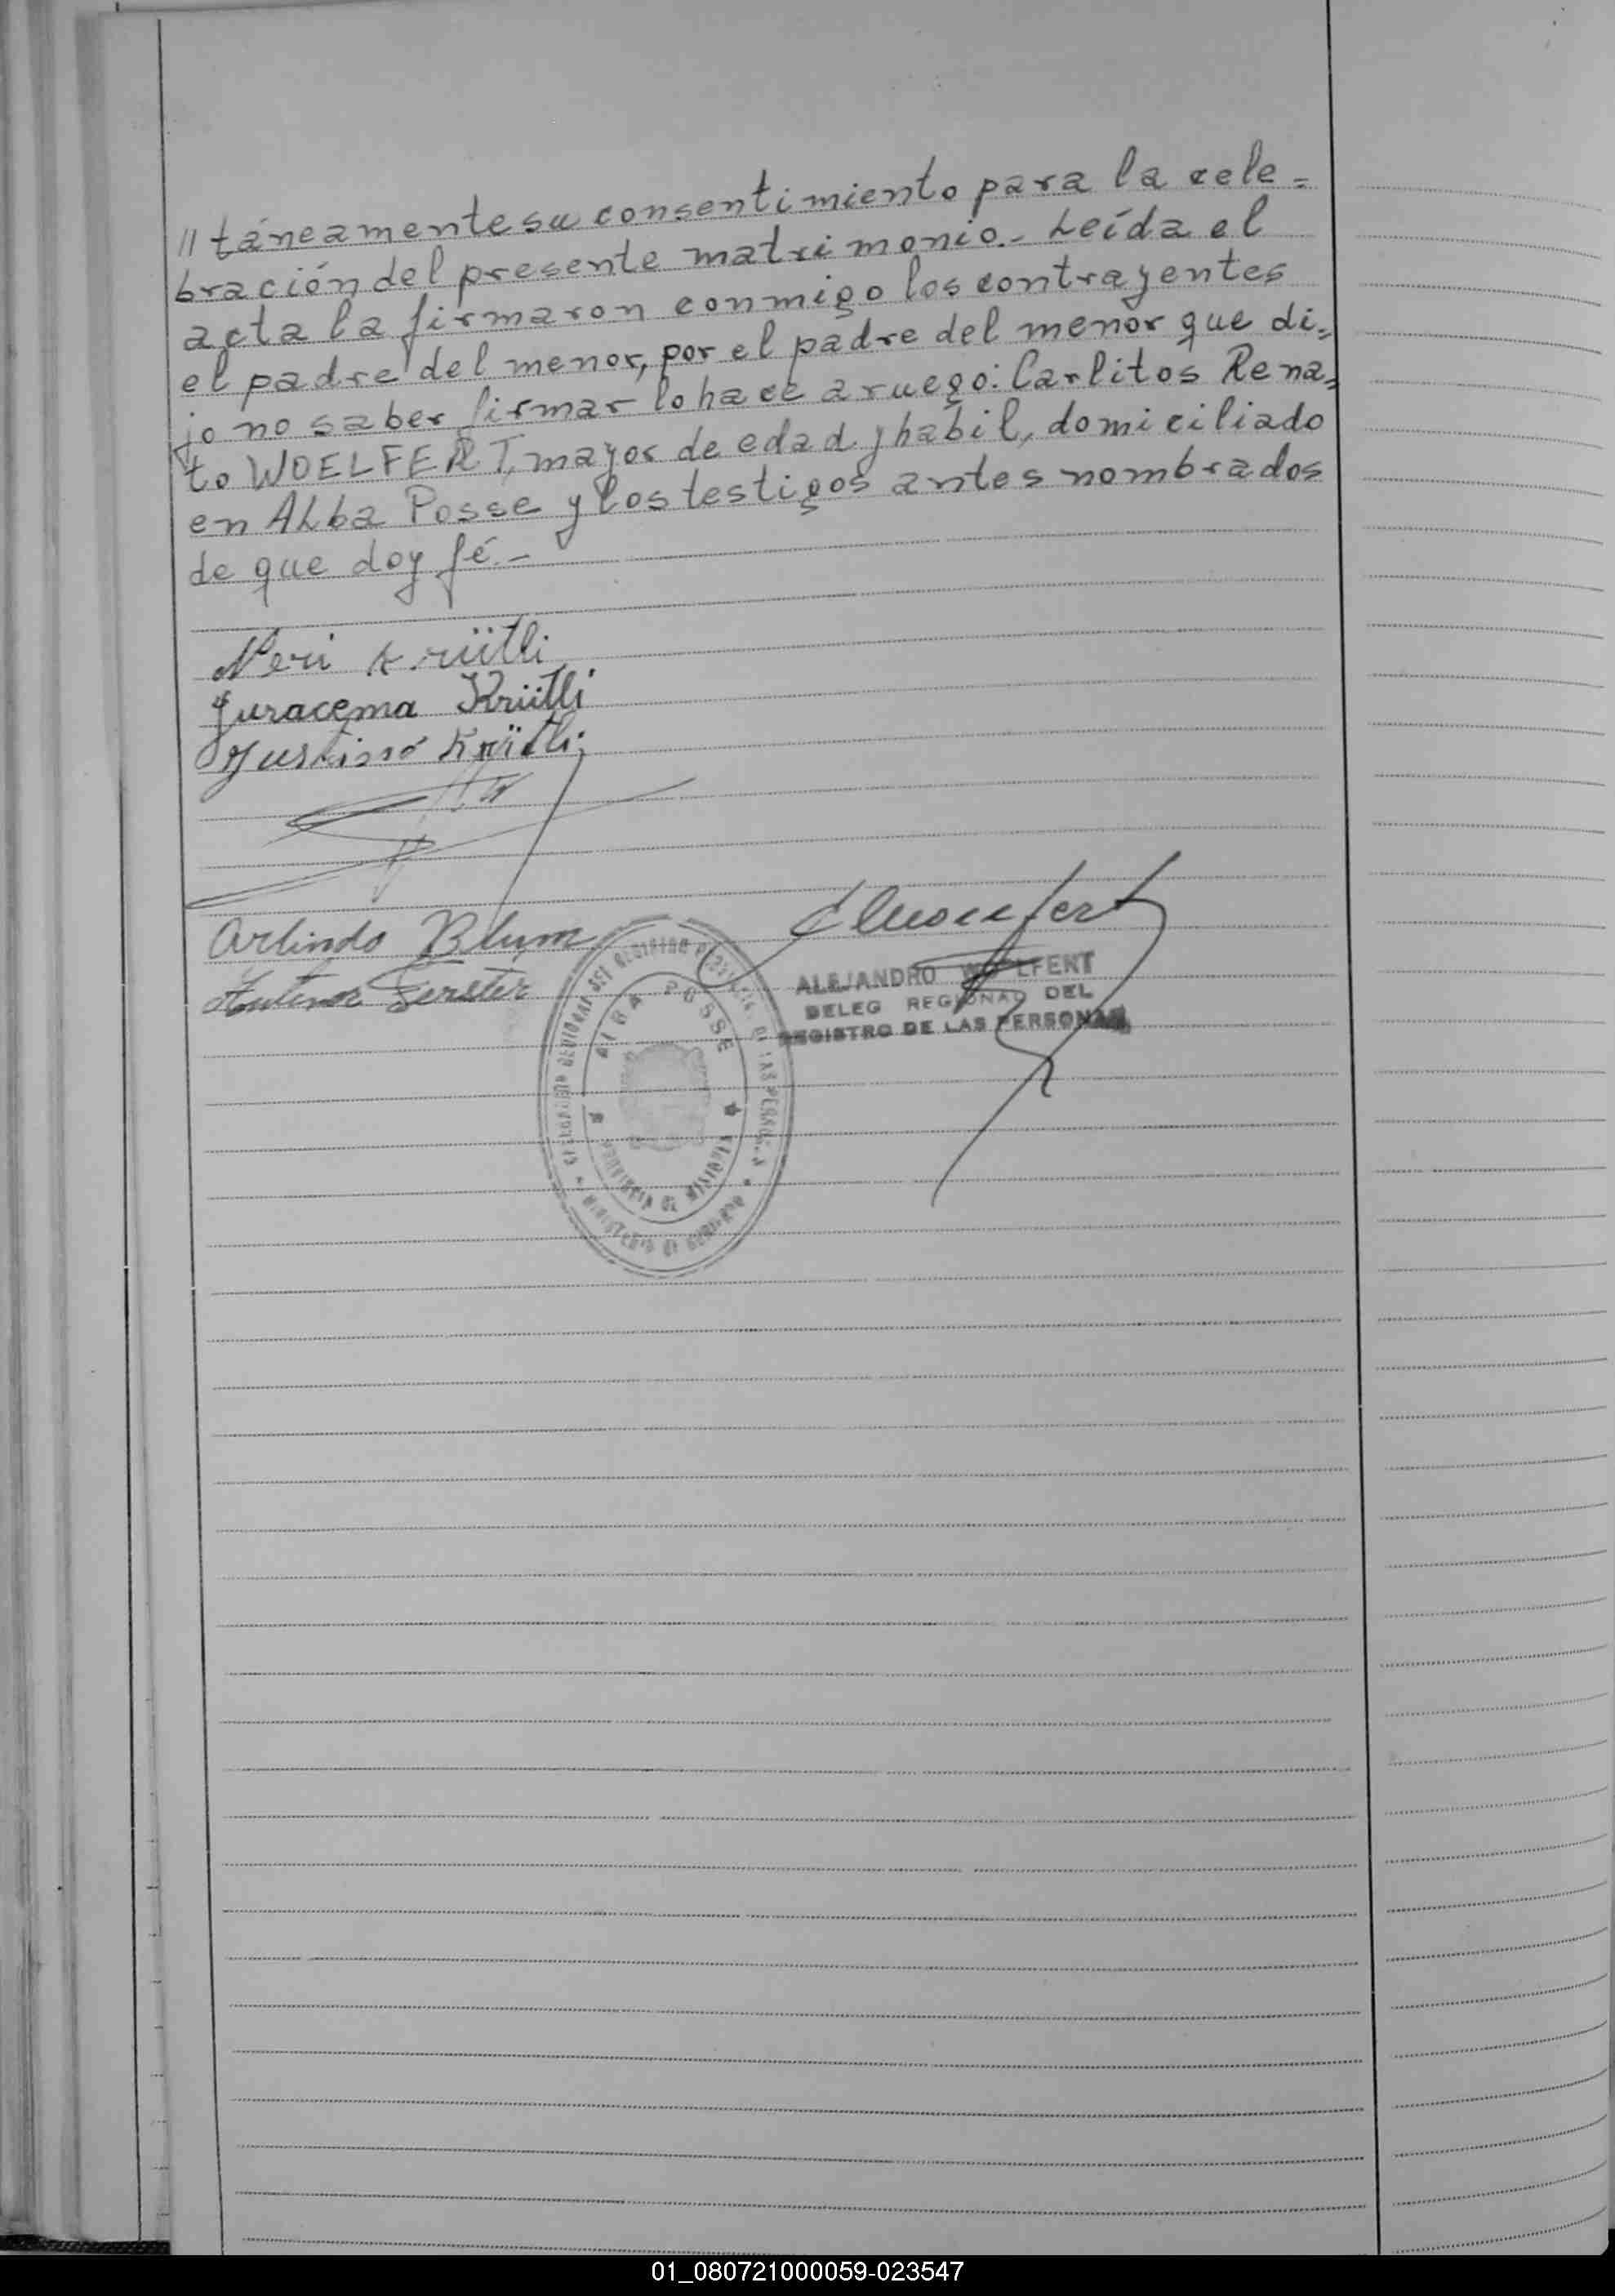 // táneamente su consentimiento para la cele=
bración del presente matrimonio.- Leída el
acta la firmaron conmigo los contrayentes
el padre del menor, por el padre del menor que di=
jo no saber firmar lo hace a ruego: Carlitos Rena=
to WOELFERT, mayor de edad y hábil, domiciliado
en Alba Posse y los testigos antes nombrados
de que doy fé.-
Neri Krütli
Juracema Krütli
Krütli
Arlindo Blum
ALEJANDRO WOELFERT
DELEG REGIONAL DEL
REGISTRO DE LAS PERSONAS
ALBA POSSE
PROVINCIA DE MISIONES
MINISTERIO DE GOBIERNO
01_080721000059-023547